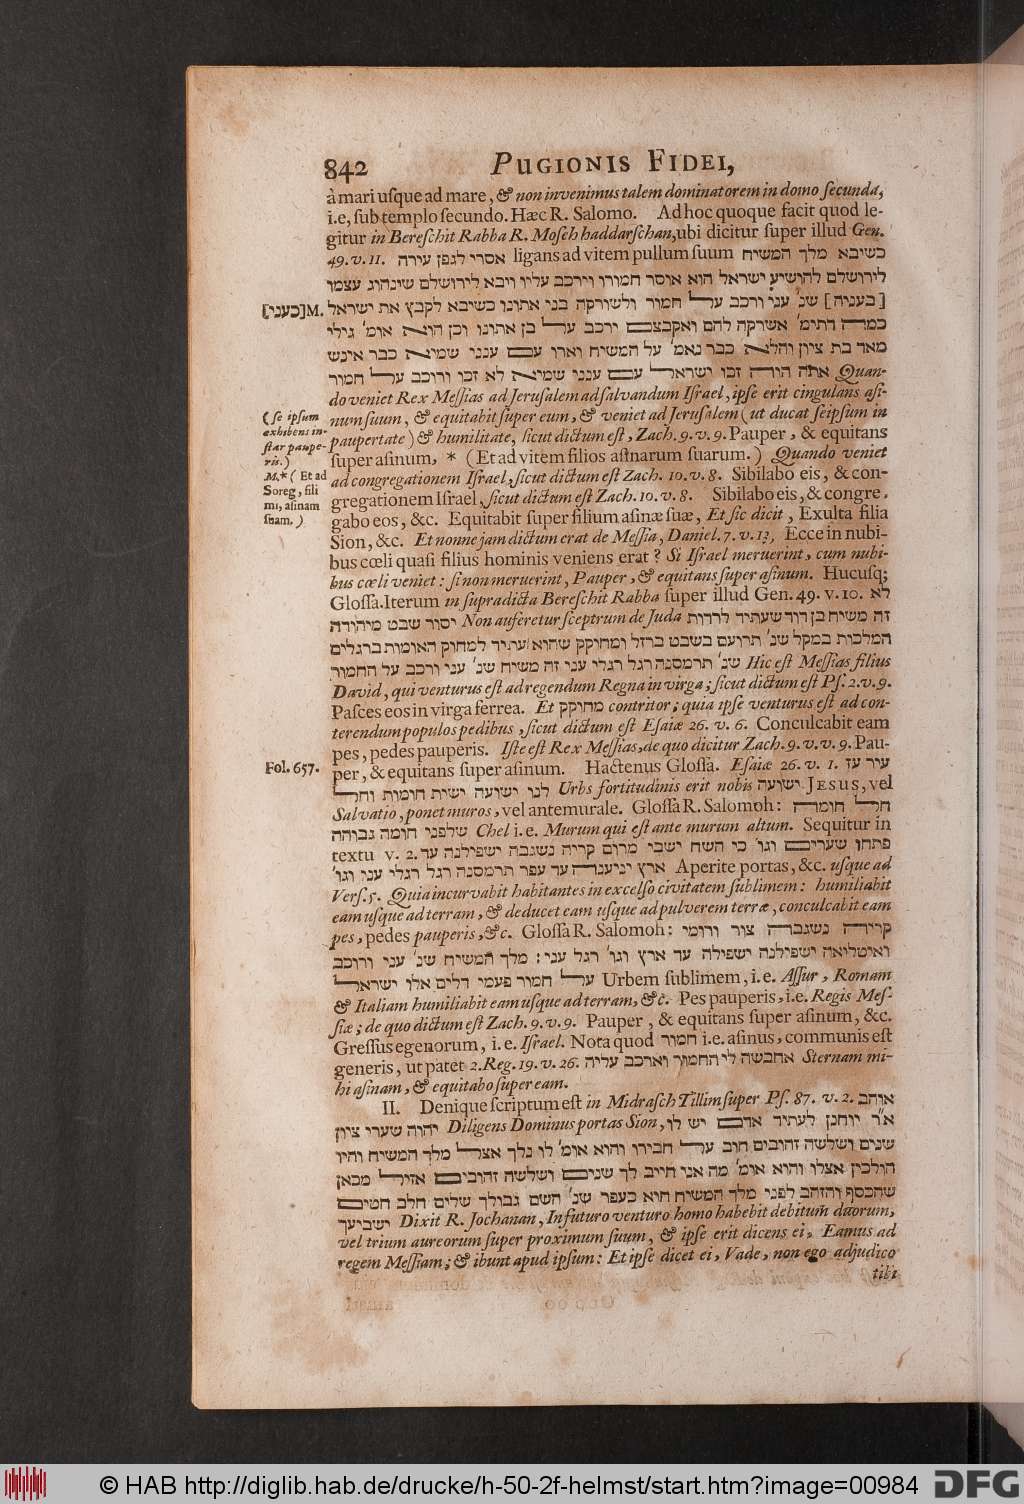 842 PUGIONIS FIDEI,
à mari usque ad mare, & non invenimus talem dominatorem in domo secunda,
i.e, sub templo secundo. Hæc R. Salomo. Ad hoc quoque facit quod le-
gitur in Bereschit Rabba R. Mosch haddarschan, ubi dicitur super illud Gen.
49. v. 11. אסרי לגפן עירה ligans ad vitem pullum suum כשיבא מלך המשיח
לירושלם להושיע ישראל הוא אוסר חמורו וירכב עליו ויבא לירושלם שינהוג עצמו
[כעני] M. [בעניה] שנ' עני ורכב על חמור ולשורקה בני אתונו כשיבא לקבץ את ישראל
כמה דתימ' אשרקה להם ואקבצם ירכב על בן אתונו וכן הוא אומ' גילי
מאד בת ציון והלא כבר נאמ' על המשיח וארו עם ענני שמיא כבר אינש
אתה הוה זכו ישראל עם ענני שמיא לא זכו ורוכב על חמור Quan-
do veniet Rex Messias ad Jerusalem ad salvandum Israel, ipse erit cingulans asi-
(se ipsum num suum, & equitabit super eum, & veniet ad Jerusalem (ut ducat seipsum in
exhibens in-
star paupe- paupertate) & humilitate, sicut dictum est, Zach. 9. v. 9. Pauper, & equitans
ris.) super asinum, * (Et ad vitem filios asinarum suarum.) Quando veniet
M.* (Et ad ad congregationem Israel, sicut dictum est Zach. 10. v. 8. Sibilabo eis, & con-
Soreg, fili gregationem Israel, sicut dictum est Zach. 10. v. 8. Sibilabo eis, & congre-
mi, asinam gabo eos, &c. Equitabit super filium asinæ suæ, Et sic dicit, Exulta filia
suam.) Sion, &c. Et nonne jam dictum erat de Messia, Daniel. 7. v. 13, Ecce in nubi-
bus cœli quasi filius hominis veniens erat? Si Israel meruerint, cum nubi-
bus cœli veniet: si non meruerint, Pauper, & equitans super asinum. Hucusq;
Glossa. Iterum in supradicta Bereschit Rabba super illud Gen. 49. v. 10. לא
יסור שבט מיהודה Non auferetur sceptrum de Juda זה משיח בן דוד שעתיד לרדות
המלכות במקל שנ' תרועם בשבט ברזל ומחוקק שהוא עתיד למחוק האומות ברגלים
שנ' תרמסנה רגל רגלי עני זה משיח שנ' עני ורכב על החמור Hic est Messias filius
David, qui venturus est ad regendum Regna in virga; sicut dictum est Ps. 2. v. 9.
Pasces eos in virga ferrea. Et מחוקק contritor; quia ipse venturus est ad con-
terendum populos pedibus, sicut dictum est Esaiæ 26. v. 6. Conculcabit eam
pes, pedes pauperis. Iste est Rex Messias, de quo dicitur Zach. 9. v. v. 9. Pau-
Fol. 657. per, & equitans super asinum. Hactenus Glossa. Esaiæ 26. v. 1. עיר עז
לנו ישועה ישית חומות וחל Urbs fortitudinis erit nobis ישועה JESUS, vel
Salvatio, ponet muros, vel antemurale. Glossa R. Salomoh: חל חומה
שלפני חומה גבוהה Chel i. e. Murum qui est ante murum altum. Sequitur in
textu v. 2. פתחו שערים וגו' כי השח ישבי מרום קריה נשגבה ישפילנה עד
ארץ יגיענה עד עפר תרמסנה רגל רגלי עני וגו' Aperite portas, &c. usque ad
Vers. 5. Quia incurvabit habitantes in excelso civitatem sublimem: humiliabit
eam usque ad terram, & deducet eam usque ad pulverem terræ, conculcabit eam
pes, pedes pauperis, &c. Glossa R. Salomoh: קריה נשגבה צור ורומי
ואיטליאה ישפילנה ישפילה עד ארץ וגו' רגל עני: מלך המשיח שנ' עני ורוכב
על חמור פעמי דלים אלו ישראל Urbem sublimem, i. e. Assur, Romam
& Italiam humiliabit eam usque ad terram, &c. Pes pauperis, i.e. Regis Mes-
siæ; de quo dictum est Zach. 9. v. 9. Pauper, & equitans super asinum, &c.
Gressus egenorum, i. e. Israel. Nota quod חמור i.e. asinus, communis est
generis, ut patet 2. Reg. 19. v. 26. אחבשה לי החמור וארכב עליה Sternam mi-
hi asinam, & equitabo super eam.
II. Denique scriptum est in Midrasch Tillim super Ps. 87. v. 2. אוהב
יהוה שערי ציון Diligens Dominus portas Sion, א"ר יוחנן לעתיד אדם יש לו
שנים ושלשה זהובים חוב על חבירו והוא אומ' לו נלך אצל מלך המשיח והיו
הולכין אצלו והוא אומ' מה אני חייב לך שנים ושלשה זהובים אזיל מכאן
שהכסף והזהב לפני מלך המשיח הוא כעפר שנ' השם גבולך שלים חלב חטים
ישביעך Dixit R. Jochanan, In futuro venturo homo habebit debitum duorum,
vel trium aureorum super proximum suum, & ipse erit dicens ei, Eamus ad
regem Messiam; & ibunt apud ipsum: Et ipse dicet ei, Vade, non ego adjudico
tibi
© HAB http://diglib.hab.de/drucke/h-50-2f-helmst/start.htm?image=00984 DFG